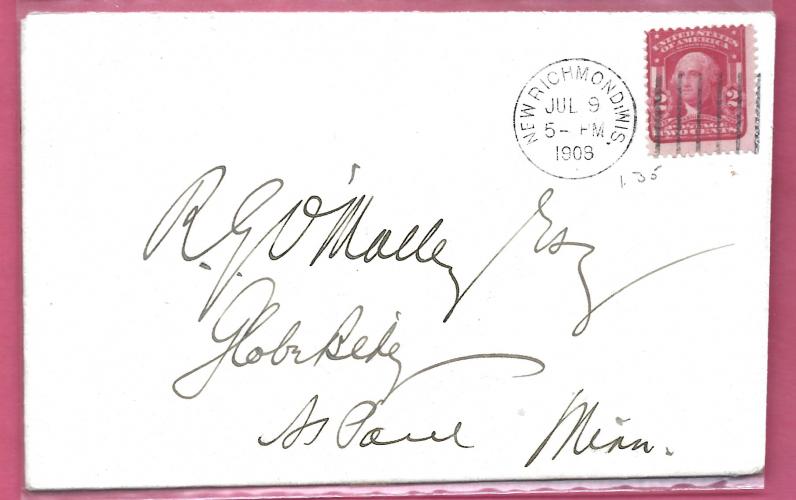 UNITED STATES
OF AMERICA
2 2
POSTAGE
TWO CENTS
NEW RICHMOND, WIS.
JUL 9
5- PM
1908
1.35
R. G. O'Malley Esq
Globe Bldg
St Paul Minn.